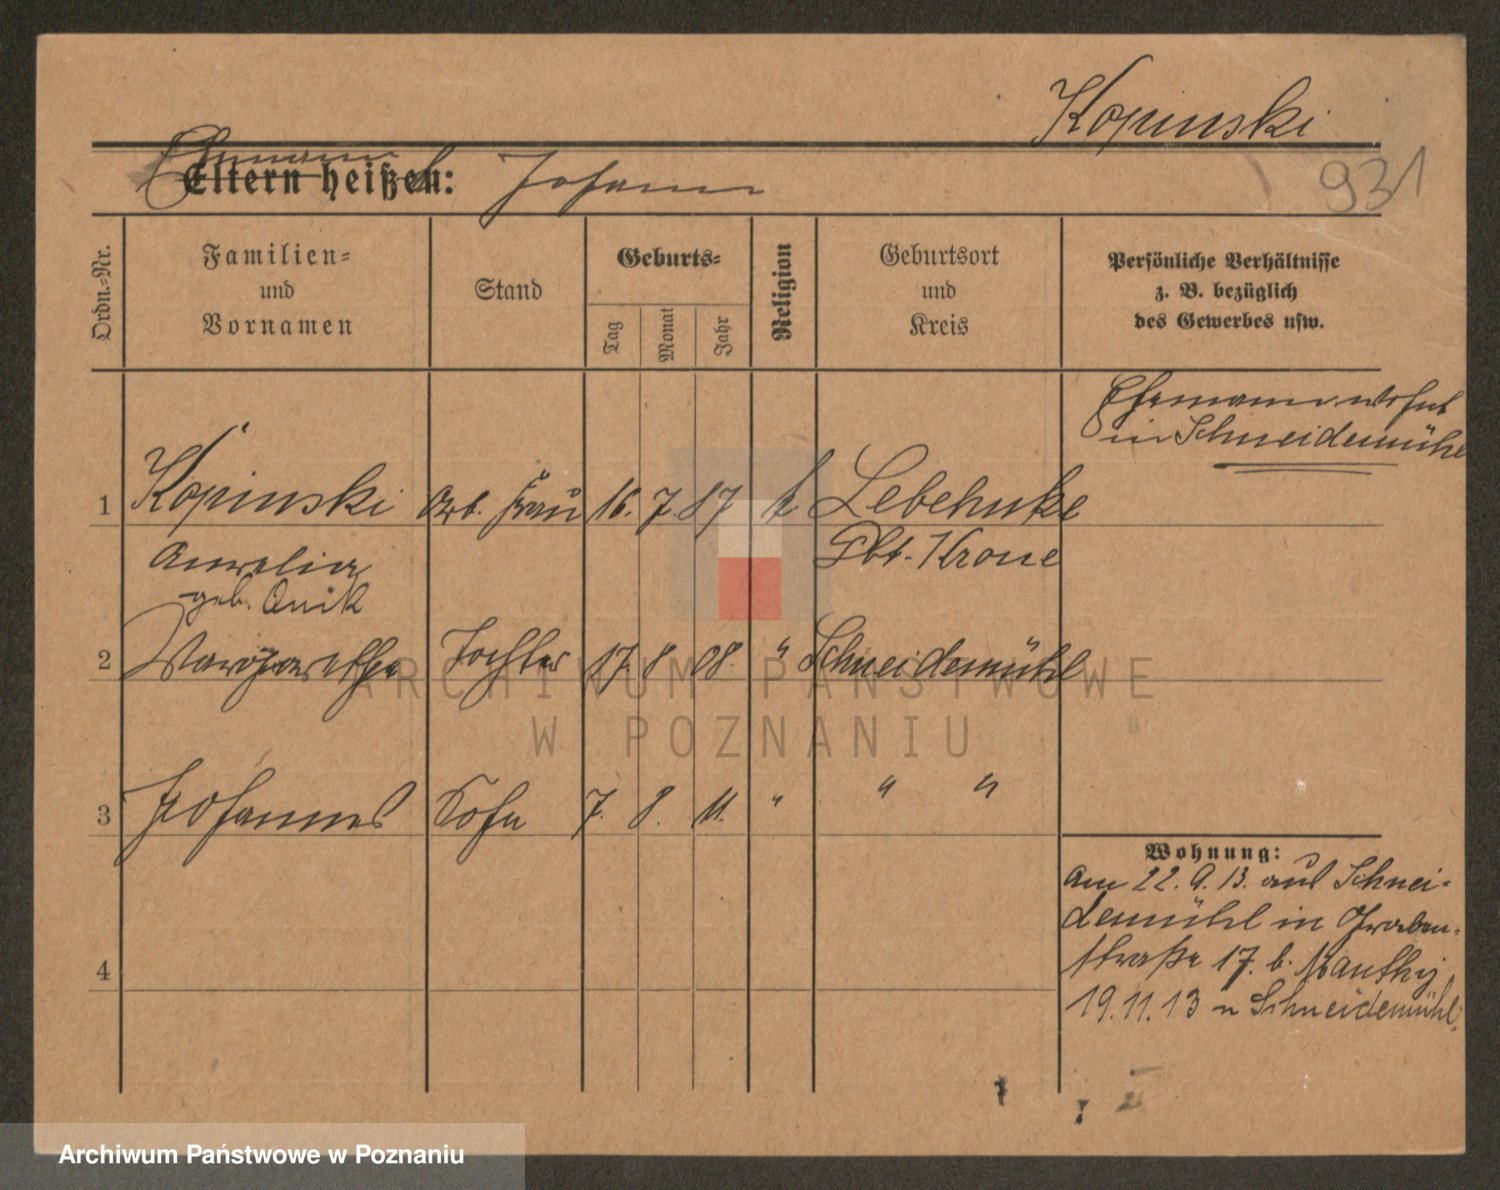 Kopinski
931
Ehemann
Eltern heißen: Johann
Ordn.-Nr.
Familien-
und
Vornamen
Stand
Geburts-
Tag
Monat
Jahr
Religion
Geburtsort
und
Kreis
Persönliche Verhältnisse
z. B. bezüglich
des Gewerbes usw.
Ehemann wohnt
in Schneidemühl
1 Kopinski Arb. Frau 16. 7. 87 k. Lebehnke
Aurelia Dt. Krone
geb. Onik
2 Margarethe Tochter 17. 8. 08. " Schneidemühl
3 Johannes Sohn 7. 8. 11. " " "
4
Wohnung:
Am 22. 9. 13. aus Schnei-
demühl in Graben-
straße 17. b. Manthey
19.11.13 n Schneidemühl.
ARCHIWUM PAŃSTWOWE
W POZNANIU
Archiwum Państwowe w Poznaniu